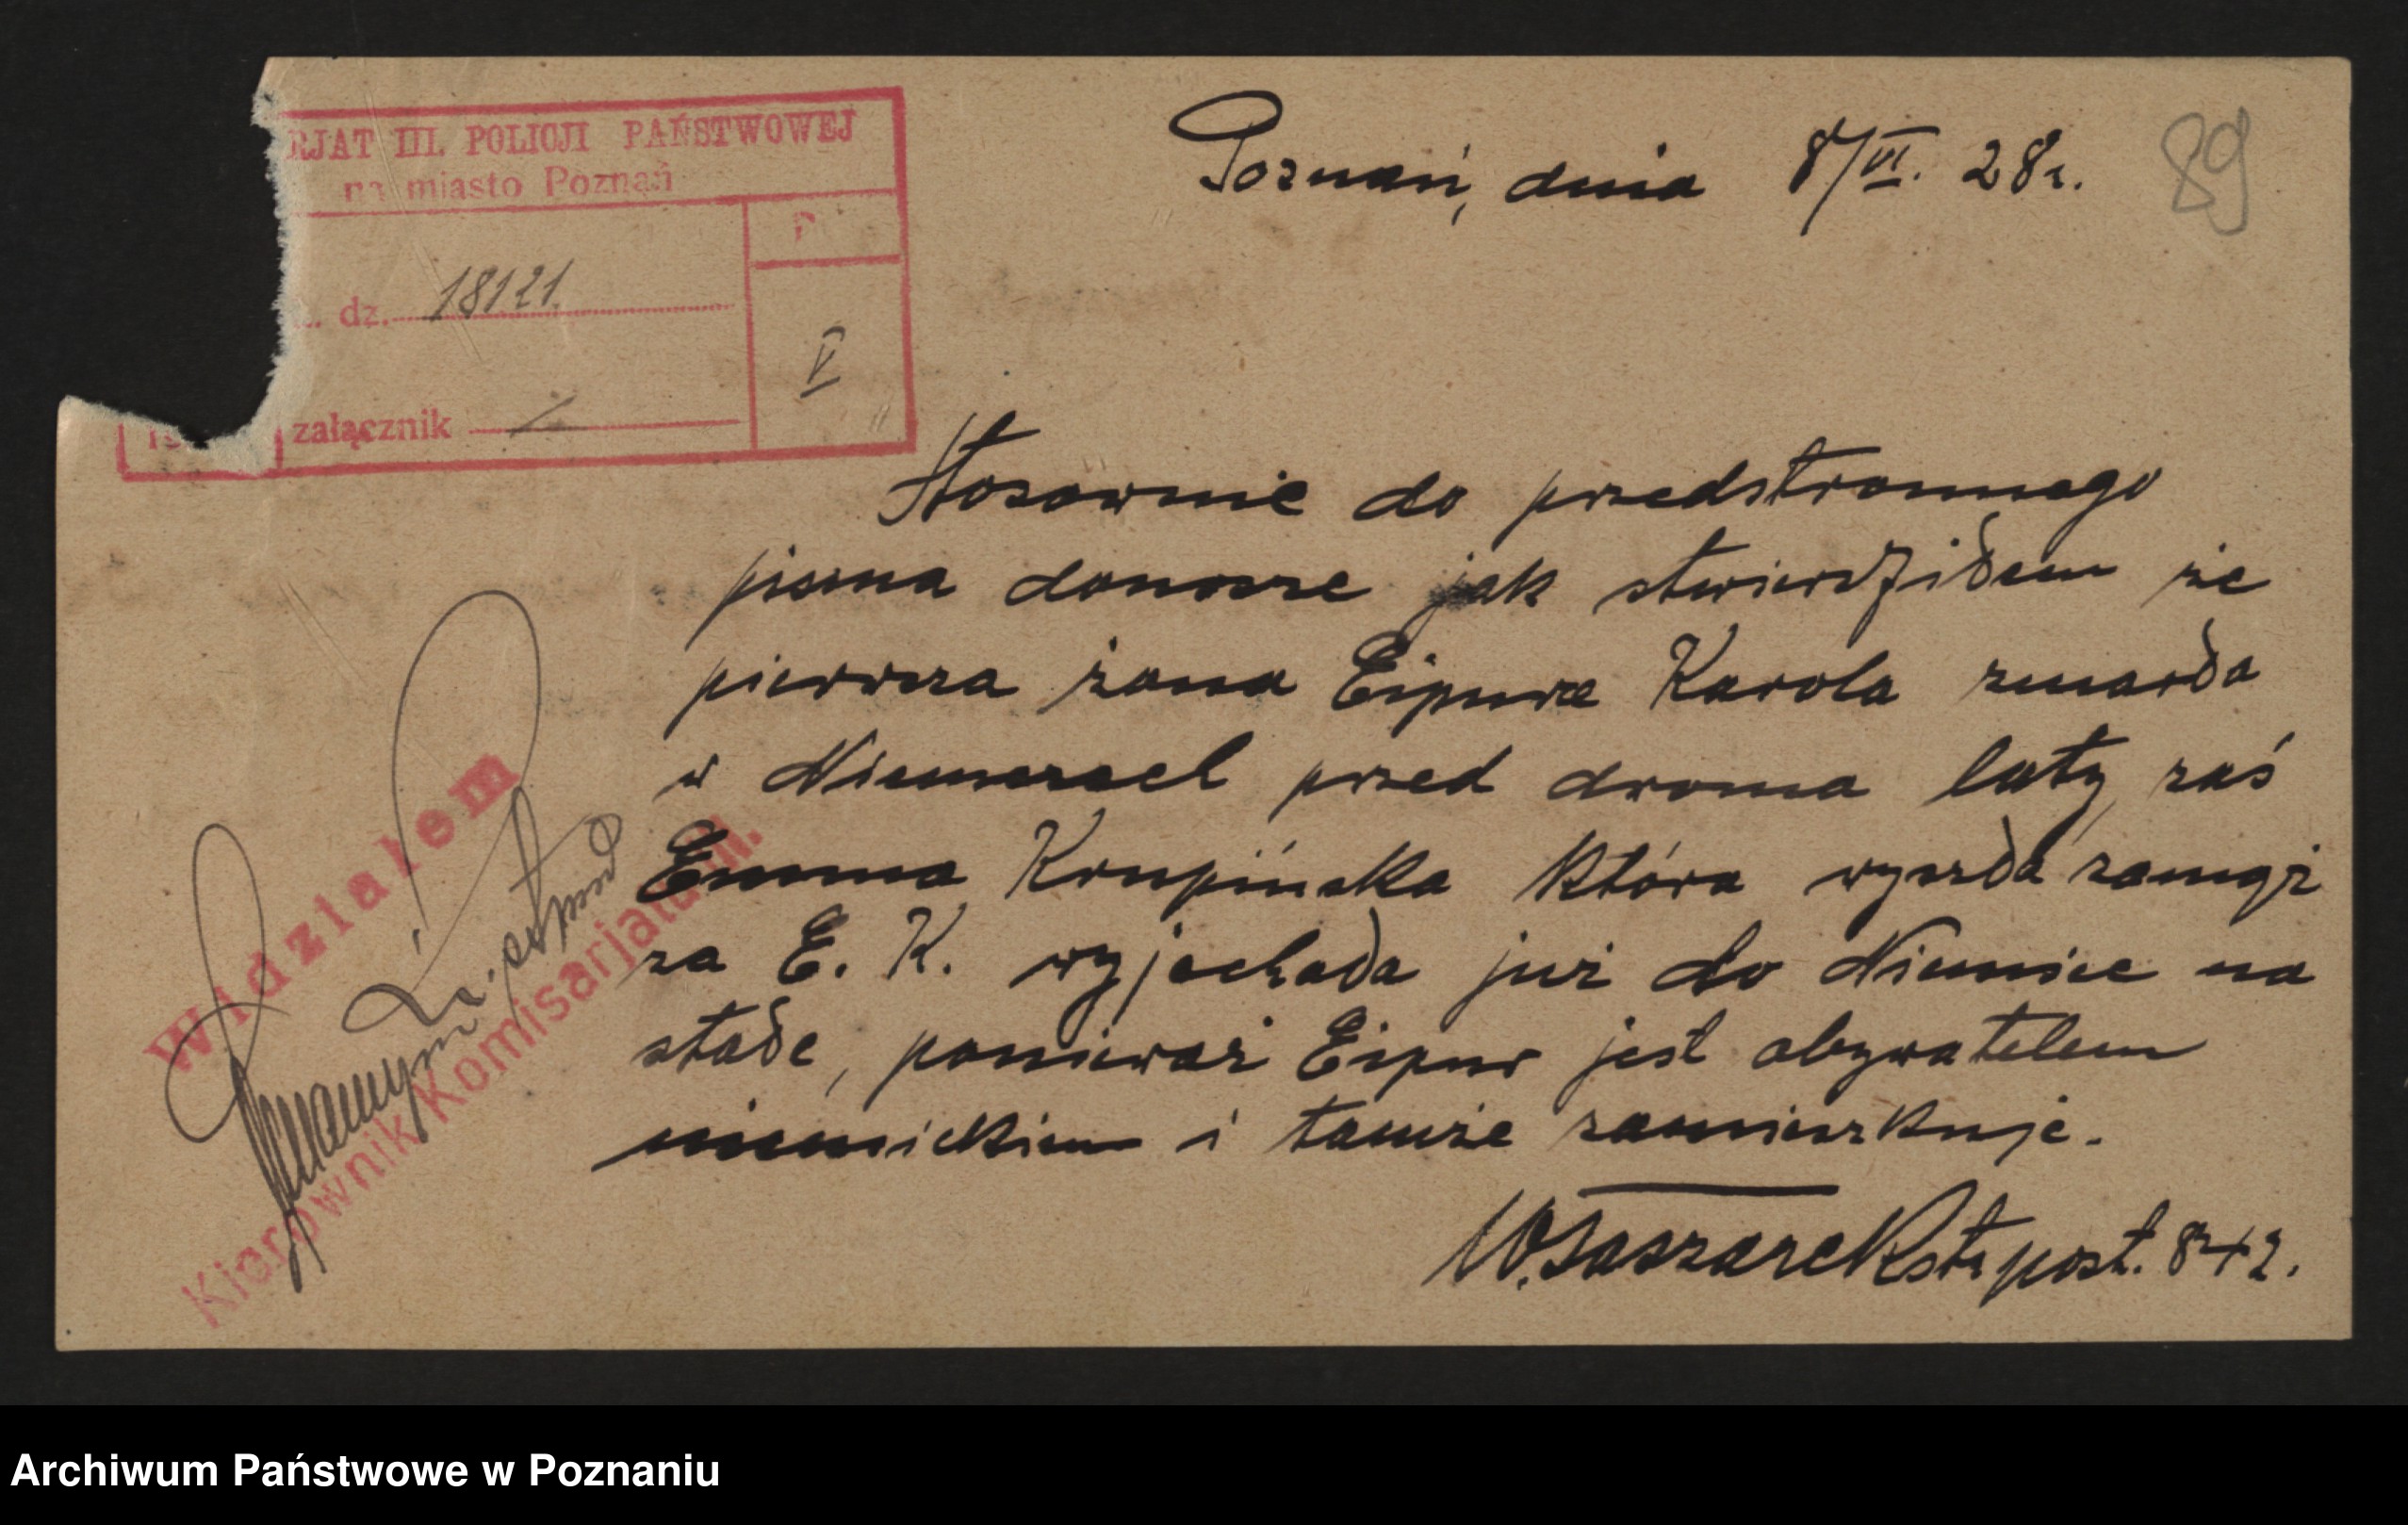 RJAT III. POLICJI PAŃSTWOWEJ
na miasto Poznań
dz. 18121
V
załącznik
Poznań, dnia 8/VI. 28 r.
89
Stosownie do przedstronnego
pisma donoszę jak stwierdziłem że
pierwsza żona Eipura Karola zmarła
w Niemczech przed dwoma laty, zaś
Emma Krupińska która wyszła zamąż
za E. K. wyjechała już do Niemiec na
stałe, ponieważ Eipur jest obywatelem
niemieckiem i tamże zamieszkuje.
W. Staszarek st. post. 842.
Widziałem
Kierownik Komisarjatu III.
Archiwum Państwowe w Poznaniu